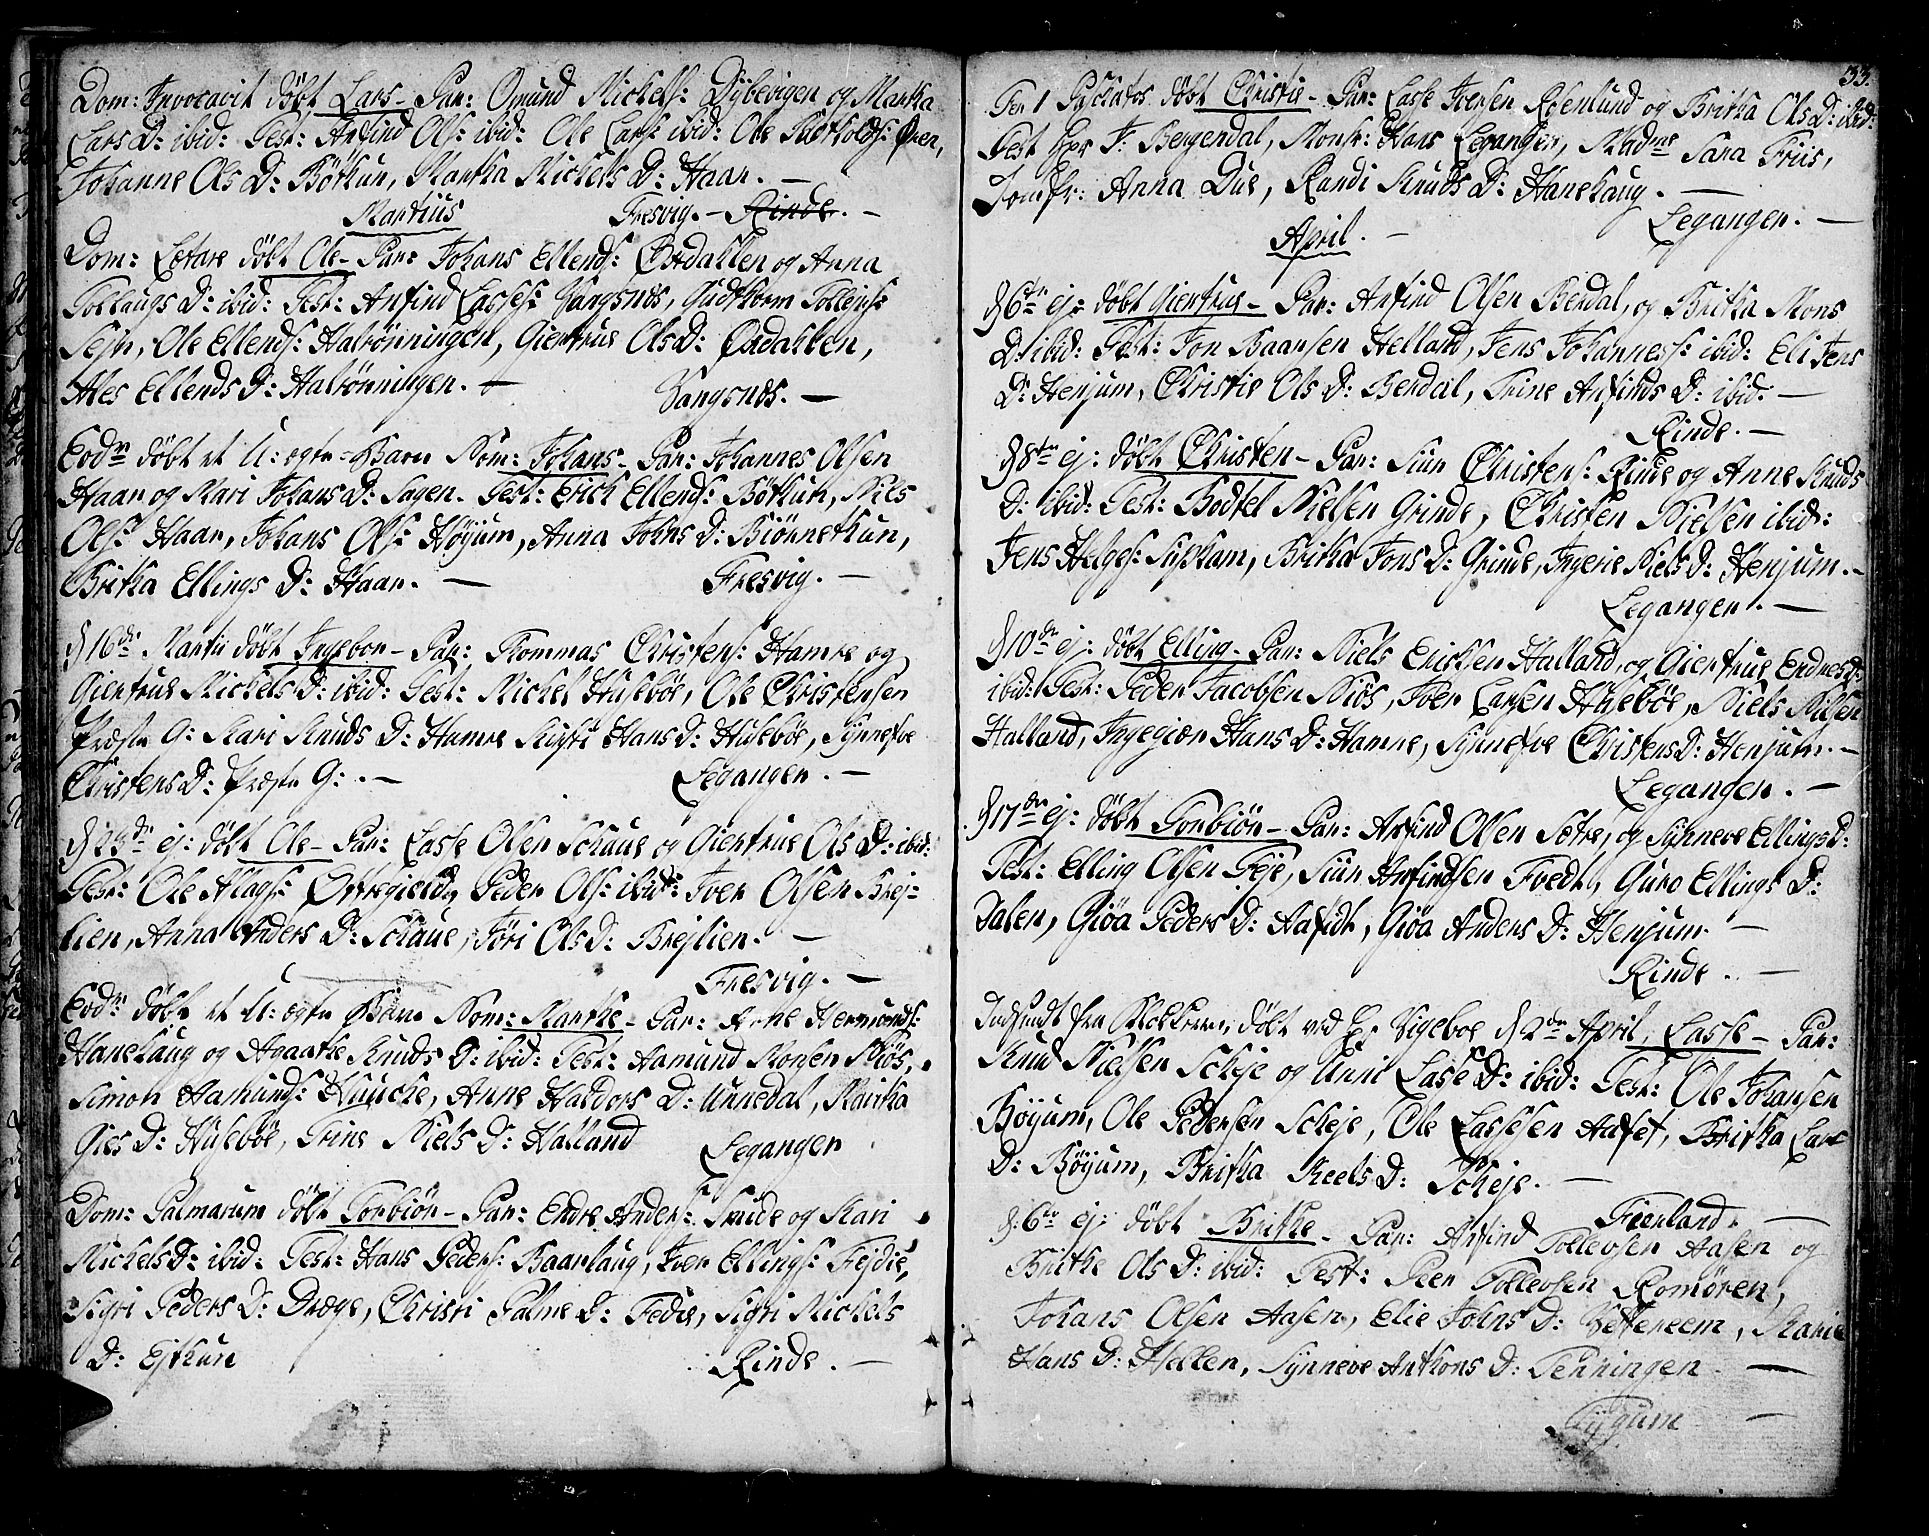 Dom: Invocavit döbt Lars - Par: Omund Mickels: Dybevigen og Martha
Lars D: ibid: Test: Anfind Ols: ibid: Ole Lars: ibid: Ole Øren,
Johanne Ols D: Böthun, Martha Mickels D: Haar. -
Martius Fresvig. - Rinde. -
Dom: Letare döbt Ole - Par: Johans Ellends: Ördahlen og Anna
Tollaugs D: ibid: Test: Anfind Lasses: Vangsnes, Gudthorm Tollejfs:
Sejn, Ole Ellends: Halrönningen, Giertrue Ols D: Ördahlen,
Ales Ellends D: Halrönningen. - Vangsnes. -
Eodn döbt et U: ægte Barn Nom: Johans - Par: Johannes Olsen
Haar og Mari Johans D: Sagen. Test: Erich Ellends: Böthun, Niels
Ols: Haar, Johans Ols: Höyum, Anna Johns D: Biönnethun,
Britha Ellings D: Haar. - Fresvig. -
D 16de Martii döbt Ingebor - Par: Tommas Christens: Hamre og
Giertrue Mickels D: ibid: Test: Mickel Huseböe, Ole Christensen
Præste G: Kari Knuds D: Hamre Hans D: Huseböe, Synnefve
Christens D: Præste G: . - Leganger. -
D 23de ej: döbt Ole - Par: Lasse Olsen Schaue og Giertrue Ols D: ibid:
Test: Ole Peder Ols: ibid: Iver Olsen Brej-
lien, Anna Anders D: Schaue, Jöri Ols D: Brejlien. -
Fresvig. -
Eodn döbt et U: ægte Barn Nom: Marthe - Par: Arne Hermunds:
Hanehaug og Agaathe Knuds D: ibid: Test: Aamund Monsen Niös,
Simon Aamunds: Anne Haldors D: Unnedal, Maritha
Gies D: Huseböe, Trine Niels D: Halland Leganger
Dom: Palmarum döbt Torbiör - Par: Endre Anders: og Kari
Mickels D: ibid: Test: Hans Peders: Baarlaug, Iver Ellings: Fejdie,
Sigri Peders D: Drege, Christi Palme D: Fedie, Sigri Mickels
D: Ejthun Rinde. -
33.
Fer 1 Paschatos döbt Christie - Par: Lasse Iversen Rosenlund og Britha Ols D: ibid:
Test Hr: F: Bergendal, Monsr: Hans Leganger, Madme Sara Friis,
Jomfr: Anna Due, Randi Knuds D: Hanehaug. -
Leganger. -
April. -
D 6te ej: döbt Giertrue - Par: Anfind Olsen Berdal, og Britha Mons
D: ibid: Test: Jon Baarsen Helland, Jens Johanness: ibid: Eli Jens
D: Henjum, Christie Ols D: Berdal, Trine Anfinds D: ibid: -
Rinde. -
D 8te ej: döbt Christen - Par: Siur Christens: Rinde og Anne Knuds
D: ibid: Test: Bodtel Nielsen Grinde, Christen Nielsen ibid:
Jens Helges: Britha Jons D: Grinde, Ingerie Niels D: Henjum. -
Leganger. -
D 10de ej: döbt Elling - Par: Niels Erichsen Halland, og Giertrue Endres D:
ibid: Test: Peder Jacobsen Niös, Iver Larsen Huseböe, Niels Nilsen
Halland, Ingegier Hans D: Hamre, Synnefve Christens D: Henjum. -
Leganger. -
D 17de ej: döbt Torbiör - Par: Anfind Olsen Sætre, og Synneve Ellings D:
Test: Elling Olsen Feje, Siur Anfindsen Tvedt, Guro Ellings D:
Dalen, Giöa Peders D: Giöa Anders D: Henjum. -
Rinde. -
Indsendt fra Klokkeren, döbt ved Hr Vigeboe D 2de April, Lasse - Par:
Knud Nielsen Scheje og Unni Lasse D: ibid: Test: Ole Johansen
Böyum, Ole Pedersen Scheje, Ole Lassesen Aafet, Britha Lars
D: Böyum, Britha Neels D: Scheje. -
Fierland. -
D: 6te ej: döbt Brithe - Par: Anfind Tollevsen Aasen og
Brithe Ols D: ibid: Test: Peer Tollevsen Romören,
Johans Olsen Aasen, Elie Johns D: Vettereem, Karie
Hans D: Hellen, Synneve Anthons D: Tenningen -
Tjugum -